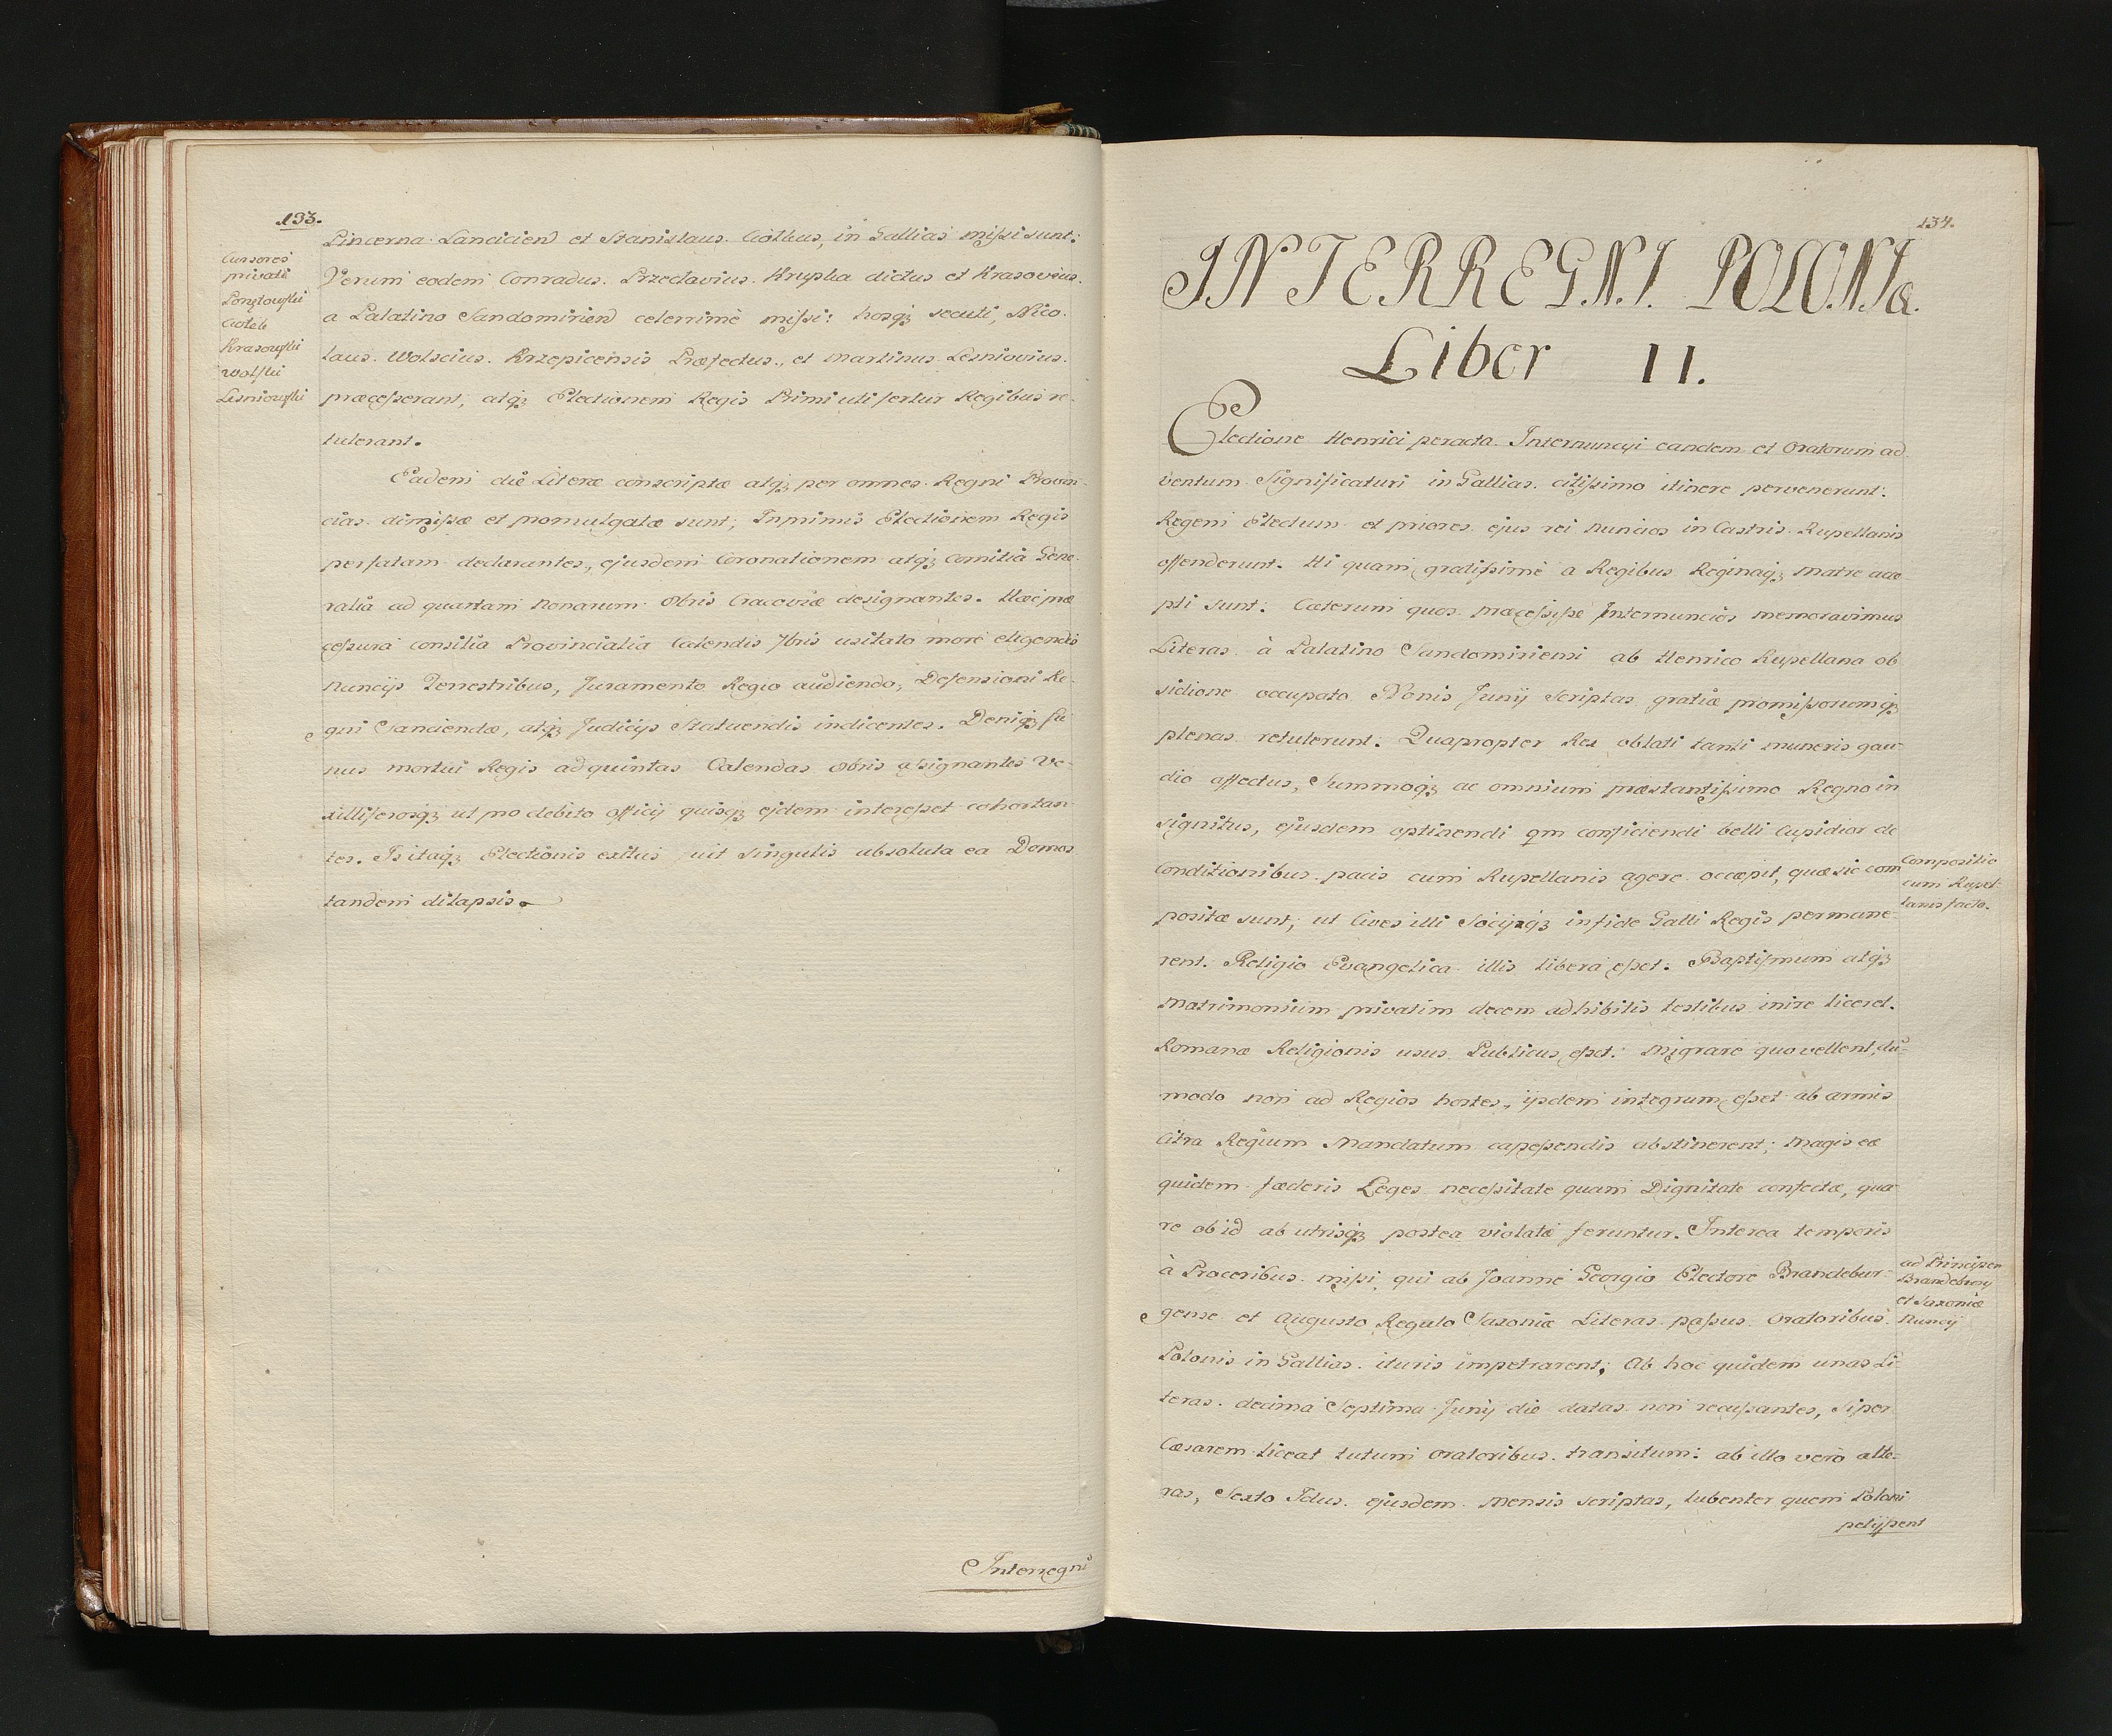 133.
Cursores
privati
Ponętowski
Ciołek
Krasowski
Wolski
Lesniowski
Pincerna Lancicien et Stanislaus Ciolkus, in Gallias missi sunt:
Verum eodem Conradus Przeclavius Krupka dictus et Krasovius
a Palatino Sandomirien celerrimè missi: hosq; secuti, Nico
laus Wolscius Krzepicensis Præfectus, et Martinus Lesniovius
præcesserant, atq; Electionem Regis Primi uti fertur Regibus re
tulerant.
Eadem die Literæ conscriptæ atq; per omnes Regni Provin
cias dimissæ et promulgatæ sunt; Inprimis Electionem Regis
perlatam declarantes, ejusdem Coronationem atq; Comitia Gene
ralia ad quartam Nonarum 8bris Cracoviæ designantes. Hæc præ
cessura consilia Provincialia Calendis 7bris usitato more eligendis
Nuncijs Terrestribus, Juramento Regio audiendo, Defensioni Re-
gni Sanciendæ, atq; Judicijs Statuendis indicentes. Deniq; fu
nus mortui Regis ad quintas Calendas 8bris assignantes Ve-
xilliferosq; ut pro debito officij quisq; ejdem interesset cohortan
tes. Is itaq; Electionis exitus uit singulis absoluta ea Domos
tandem dilapsis.
Interregni
134.
INTERREGNI POLONIæ.
Liber II.
Electione Henrici peracta Internuncyi eandem et Oratorum ad
ventum Significaturi in Gallias citissimo itinere pervenerunt:
Regem Electum et priores ejus rei nuncios in Castris Rupellanis
offenderunt. Hi quam gratissimè a Regibus Reginaq; Matre acce
pti sunt: Cæterum quos præcessisse Internuncios memoravimus
Literas à Palatino Sandomiriensi ab Henrico Rupellana ob
sidione occupato Nonis Junij scriptas gratiæ promissorumq;
plenas retulerunt. Quapropter Rex oblati tanti muneris gau
dio affectus, Summoq; ac omnium præstantissimo Regno in
signitus, ejusdem optinendi qm conficiendi belli Cupidior de
Conditionibus pacis cum Rupellanis agere occæpit, quæ sic com
positæ sunt; ut Cives illi Socijq; in fide Galli Regis permane
rent. Religio Evangelica illis libera esset: Baptismum atq;
Matrimonium privatim decem adhibitis testibus inire liceret.
Romanæ Religionis usus Publicus esset: Migrare quo vellent, du-
modo non ad Regios hostes, ijsdem integrum esset ab armis
Citra Regium Mandatum capessendis abstinerent; Magis eæ
quidem fæderis Leges necessitate quam Dignitate confectæ, qua
re ob id ab utrisq; postea violatæ feruntur. Interea temporis
à Proceribus missi, qui ab Joanne Georgio Electore Brandebur-
gense et Augusto Regulo Saxoniæ Literas passus Oratoribus
Polonis in Gallias ituris impetrarent; Ab hoc quidem unas Li-
teras decima Septima Junij die datas non recusantes, si per
Cæsarem liceat tutum Oratoribus transitum: ab illo verò alte-
ras, Sexto Idus ejusdem Mensis scriptas, lubenter quem Poloni
petijssent
Compositio
cum Rupel-
lanis facta.
ad Principes
Brandeburg
et Saxoniæ
Nuncij